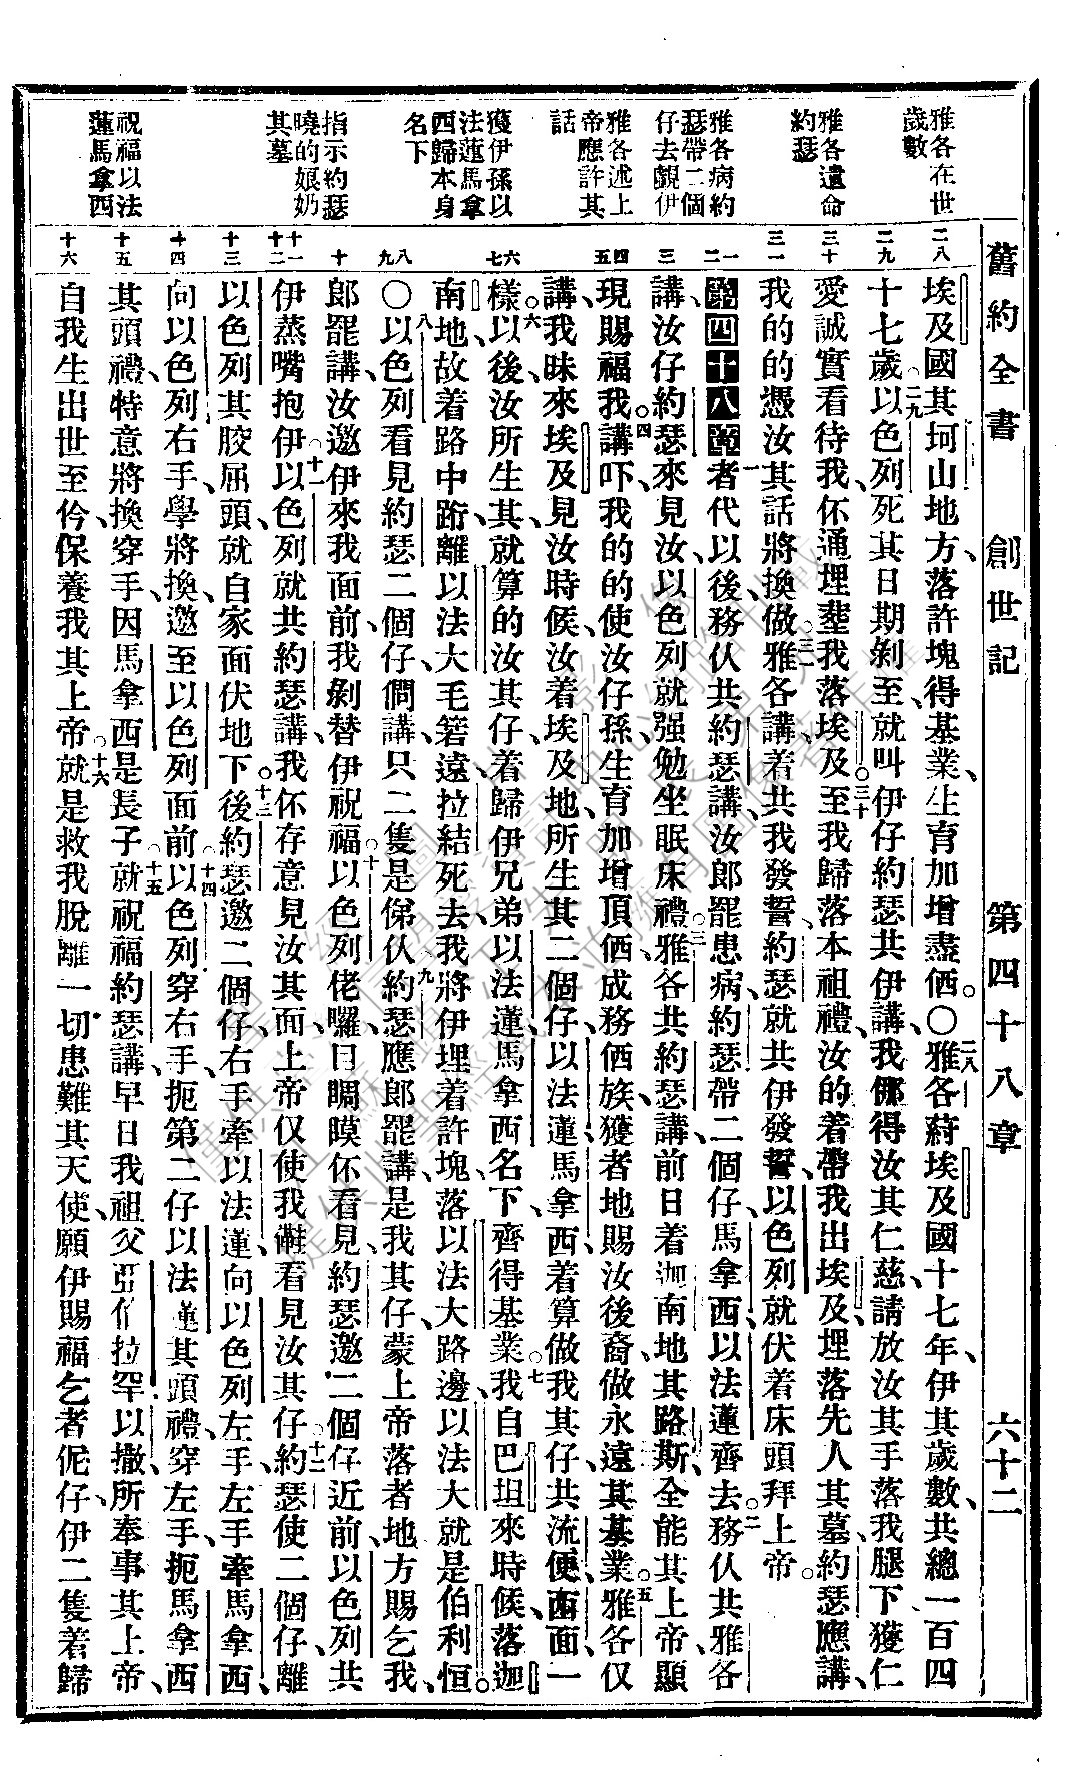 舊約全書 創世記 第四十八章 六十二
雅各在世
歲數
雅各遺命
約瑟
雅各病約
瑟帶二個
仔去覷伊
雅各述上
帝應許其
話
獲伊孫以
法蓮馬拿
西歸本身
名下
指示約瑟
曉的娘奶
其墓
祝福以法
蓮馬拿西
二八
二九
三十
三一
一二
三
四五
六七
八九
十
十一十二
十三
十四
十五
十六
埃及國其坷山地方、落許塊得基業、生育加增盡伷。〇二八雅各蒔埃及國十七年、伊其歲數、共總一百四
十七歲。二九以色列死其日期剝至、就叫伊仔約瑟共伊講、我儸得汝其仁慈、請放汝其手落我腿下、獲仁
愛誠實看待我、伓通埋塟我落埃及。三十至我歸落本祖禮、汝的着帶我出埃及、埋落先人其墓、約瑟應講、
我的的憑汝其話將換做。三一雅各講、着共我發誓、約瑟就共伊發誓、以色列就伏着床頭拜上帝。
第四十八章一者代以後、務仈共約瑟講、汝郎罷患病、約瑟帶二個仔、馬拿西、以法蓮齊去。二務仈共雅各
講、汝仔約瑟來見汝、以色列就强勉坐眠床禮。三雅各共約瑟講、前日着迦南地其路斯、全能其上帝顯
現賜福我。四講吓、我的的使汝仔孫生育加增、頂伷成務伷族、獲者地賜汝後裔、做永遠其基業。五雅各仅
講、我昧來埃及見汝時候、汝着埃及地、所生其二個仔、以法蓮、馬拿西、着算做我其仔、共流便、西面一
樣。六以後汝所生其、就算的汝其仔、着歸伊兄弟以法蓮馬拿西名下、齊得基業。七我自巴坦來時候、落迦
南地、故着路中跡離以法大毛箬遠、拉結死去、我將伊埋着許塊、落以法大路邊、以法大就是伯利恒。
〇八以色列看見約瑟二個仔、僩講、只二隻是俤仈。九約瑟應郎罷講、是我其仔、蒙上帝落者地方賜乞我、
郎罷講、汝邀伊來我面前、我剝替伊祝福。十以色列佬囉、目瞯瞙伓看見、約瑟邀二個仔近前、以色列共
伊蒸嘴抱伊。十一以色列就共約瑟講、我伓存意見汝其面、上帝仅使我囇看見汝其仔。十二約瑟使二個仔、離
以色列其胶屈頭、就自家面伏地下。十三後約瑟邀二個仔、右手牽以法蓮、向以色列左手、左手牽馬拿西、
向以色列右手、學將換、邀至以色列面前。十四以色列穿右手、扼第二仔以法蓮其頭禮、穿左手、扼馬拿西
其頭禮、特意將換穿手、因馬拿西是長子。十五就祝福約瑟講、早日我祖父亞伯拉罕、以撒、所奉事其上帝、
自我生出世至仱、保養我其上帝。十六就是救我脫離一切患難其天使、願伊賜福乞者伲仔、伊二隻着歸